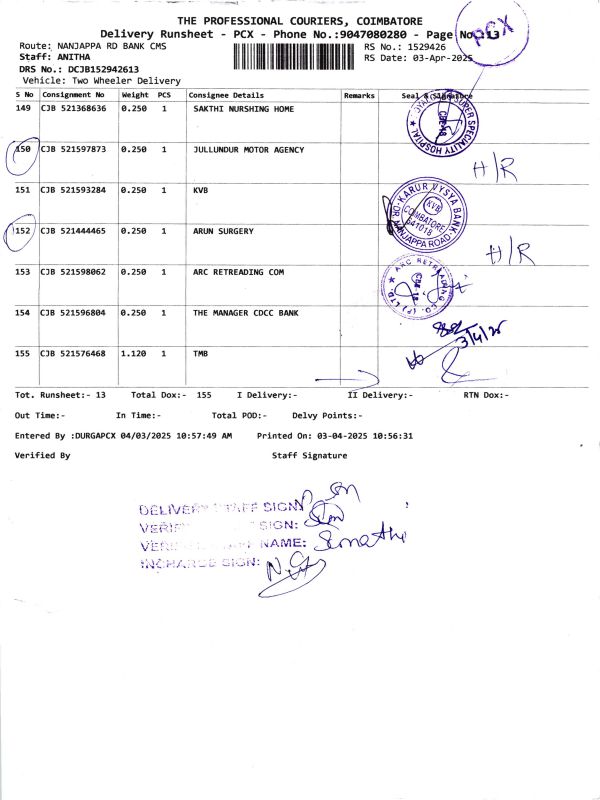 THE PROFESSIONAL COURIERS, COIMBATORE
Delivery Runsheet - PCX - Phone No.:9047080280 - Page No.:13
PCX
Route: NANJAPPA RD BANK CMS
RS No.: 1529426
Staff: ANITHA
RS Date: 03-Apr-2025
DRS No.: DCJB152942613
Vehicle: Two Wheeler Delivery
S No Consignment No Weight PCS Consignee Details Remarks Seal & Signature
149 CJB 521368636 0.250 1 SAKTHI NURSHING HOME
SUPER SPECIALITY HOSPITAL
150 CJB 521597873 0.250 1 JULLUNDUR MOTOR AGENCY
H/R
151 CJB 521593284 0.250 1 KVB
KARUR VYSYA BANK
KVB
COIMBATORE
641018
NANJAPPA ROAD
152 CJB 521444465 0.250 1 ARUN SURGERY
H/R
153 CJB 521598062 0.250 1 ARC RETREADING COM
ARC RETREADING CO. (P) LTD.
CBE-18
154 CJB 521596804 0.250 1 THE MANAGER CDCC BANK
3/4/25
155 CJB 521576468 1.120 1 TMB
Tot. Runsheet:- 13 Total Dox:- 155 I Delivery:- II Delivery:- RTN Dox:-
Out Time:- In Time:- Total POD:- Delvy Points:-
Entered By :DURGAPCX 04/03/2025 10:57:49 AM Printed On: 03-04-2025 10:56:31
Verified By Staff Signature
DELIVERY STAFF SIGN:
SIGN:
NAME: Sumathi
INCHARGE SIGN: